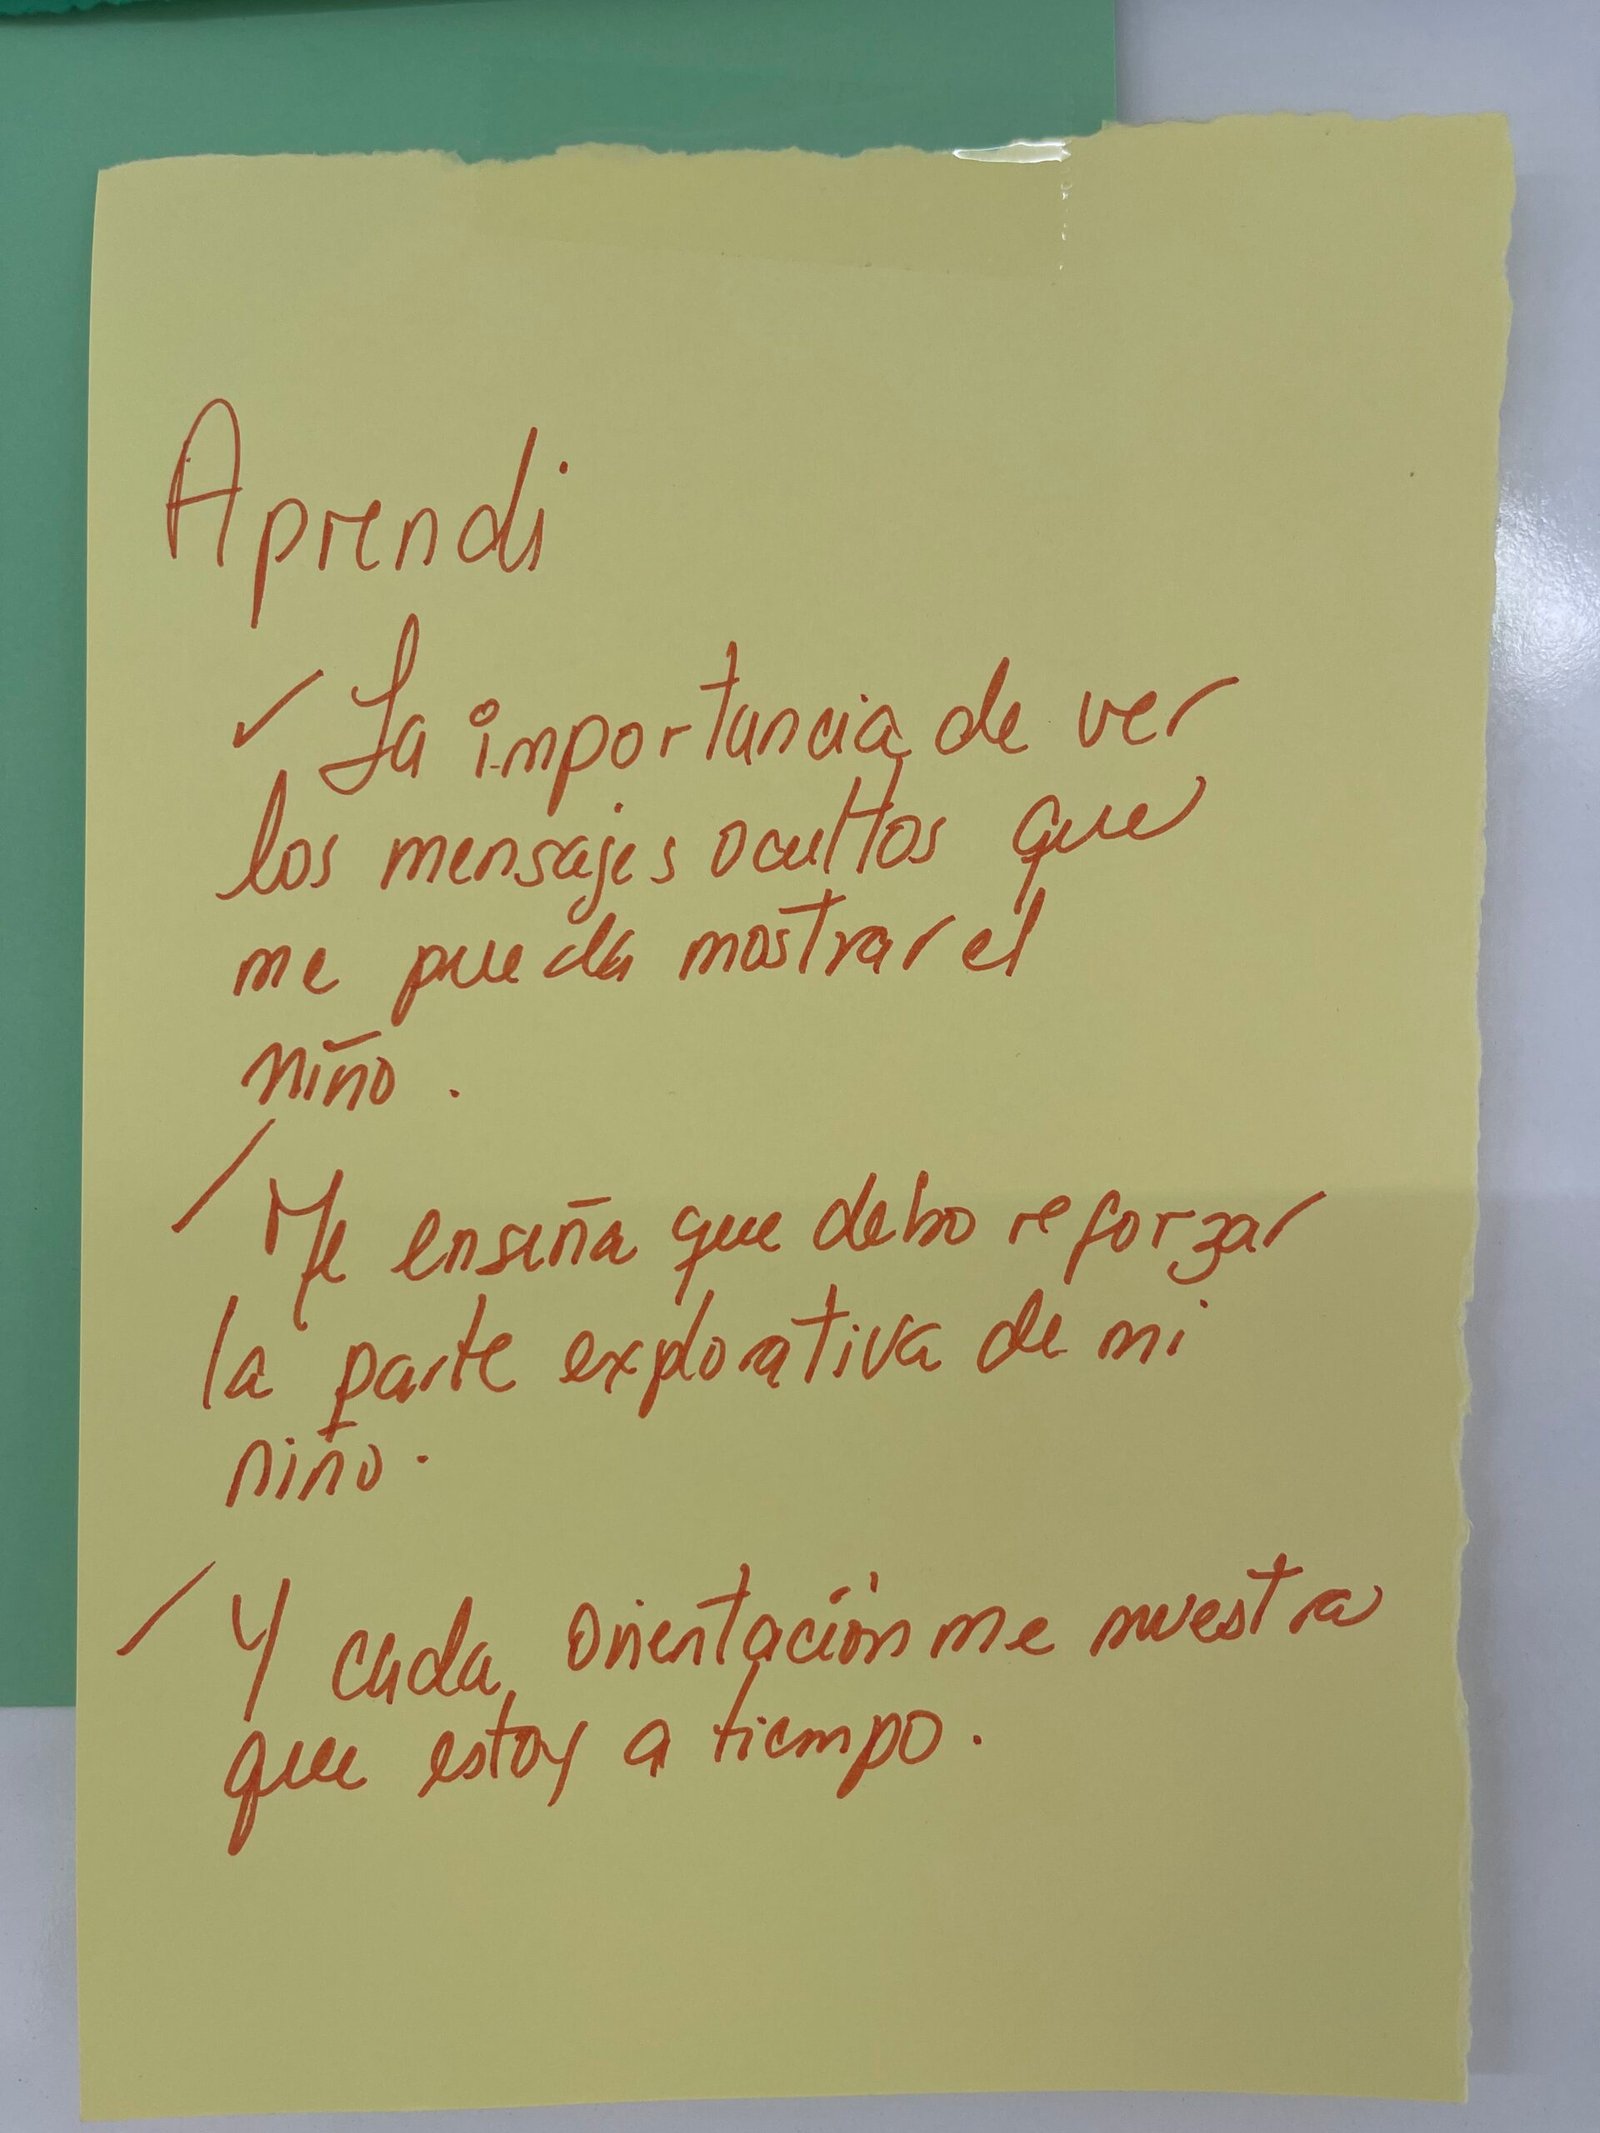 Aprendi
✓ La importancia de ver
los mensajes ocultos que
me pueda mostrar el
niño.
/ Me enseña que debo reforzar
la parte explorativa de mi
niño.
/ Y cada orientación me muestra
que estoy a tiempo.